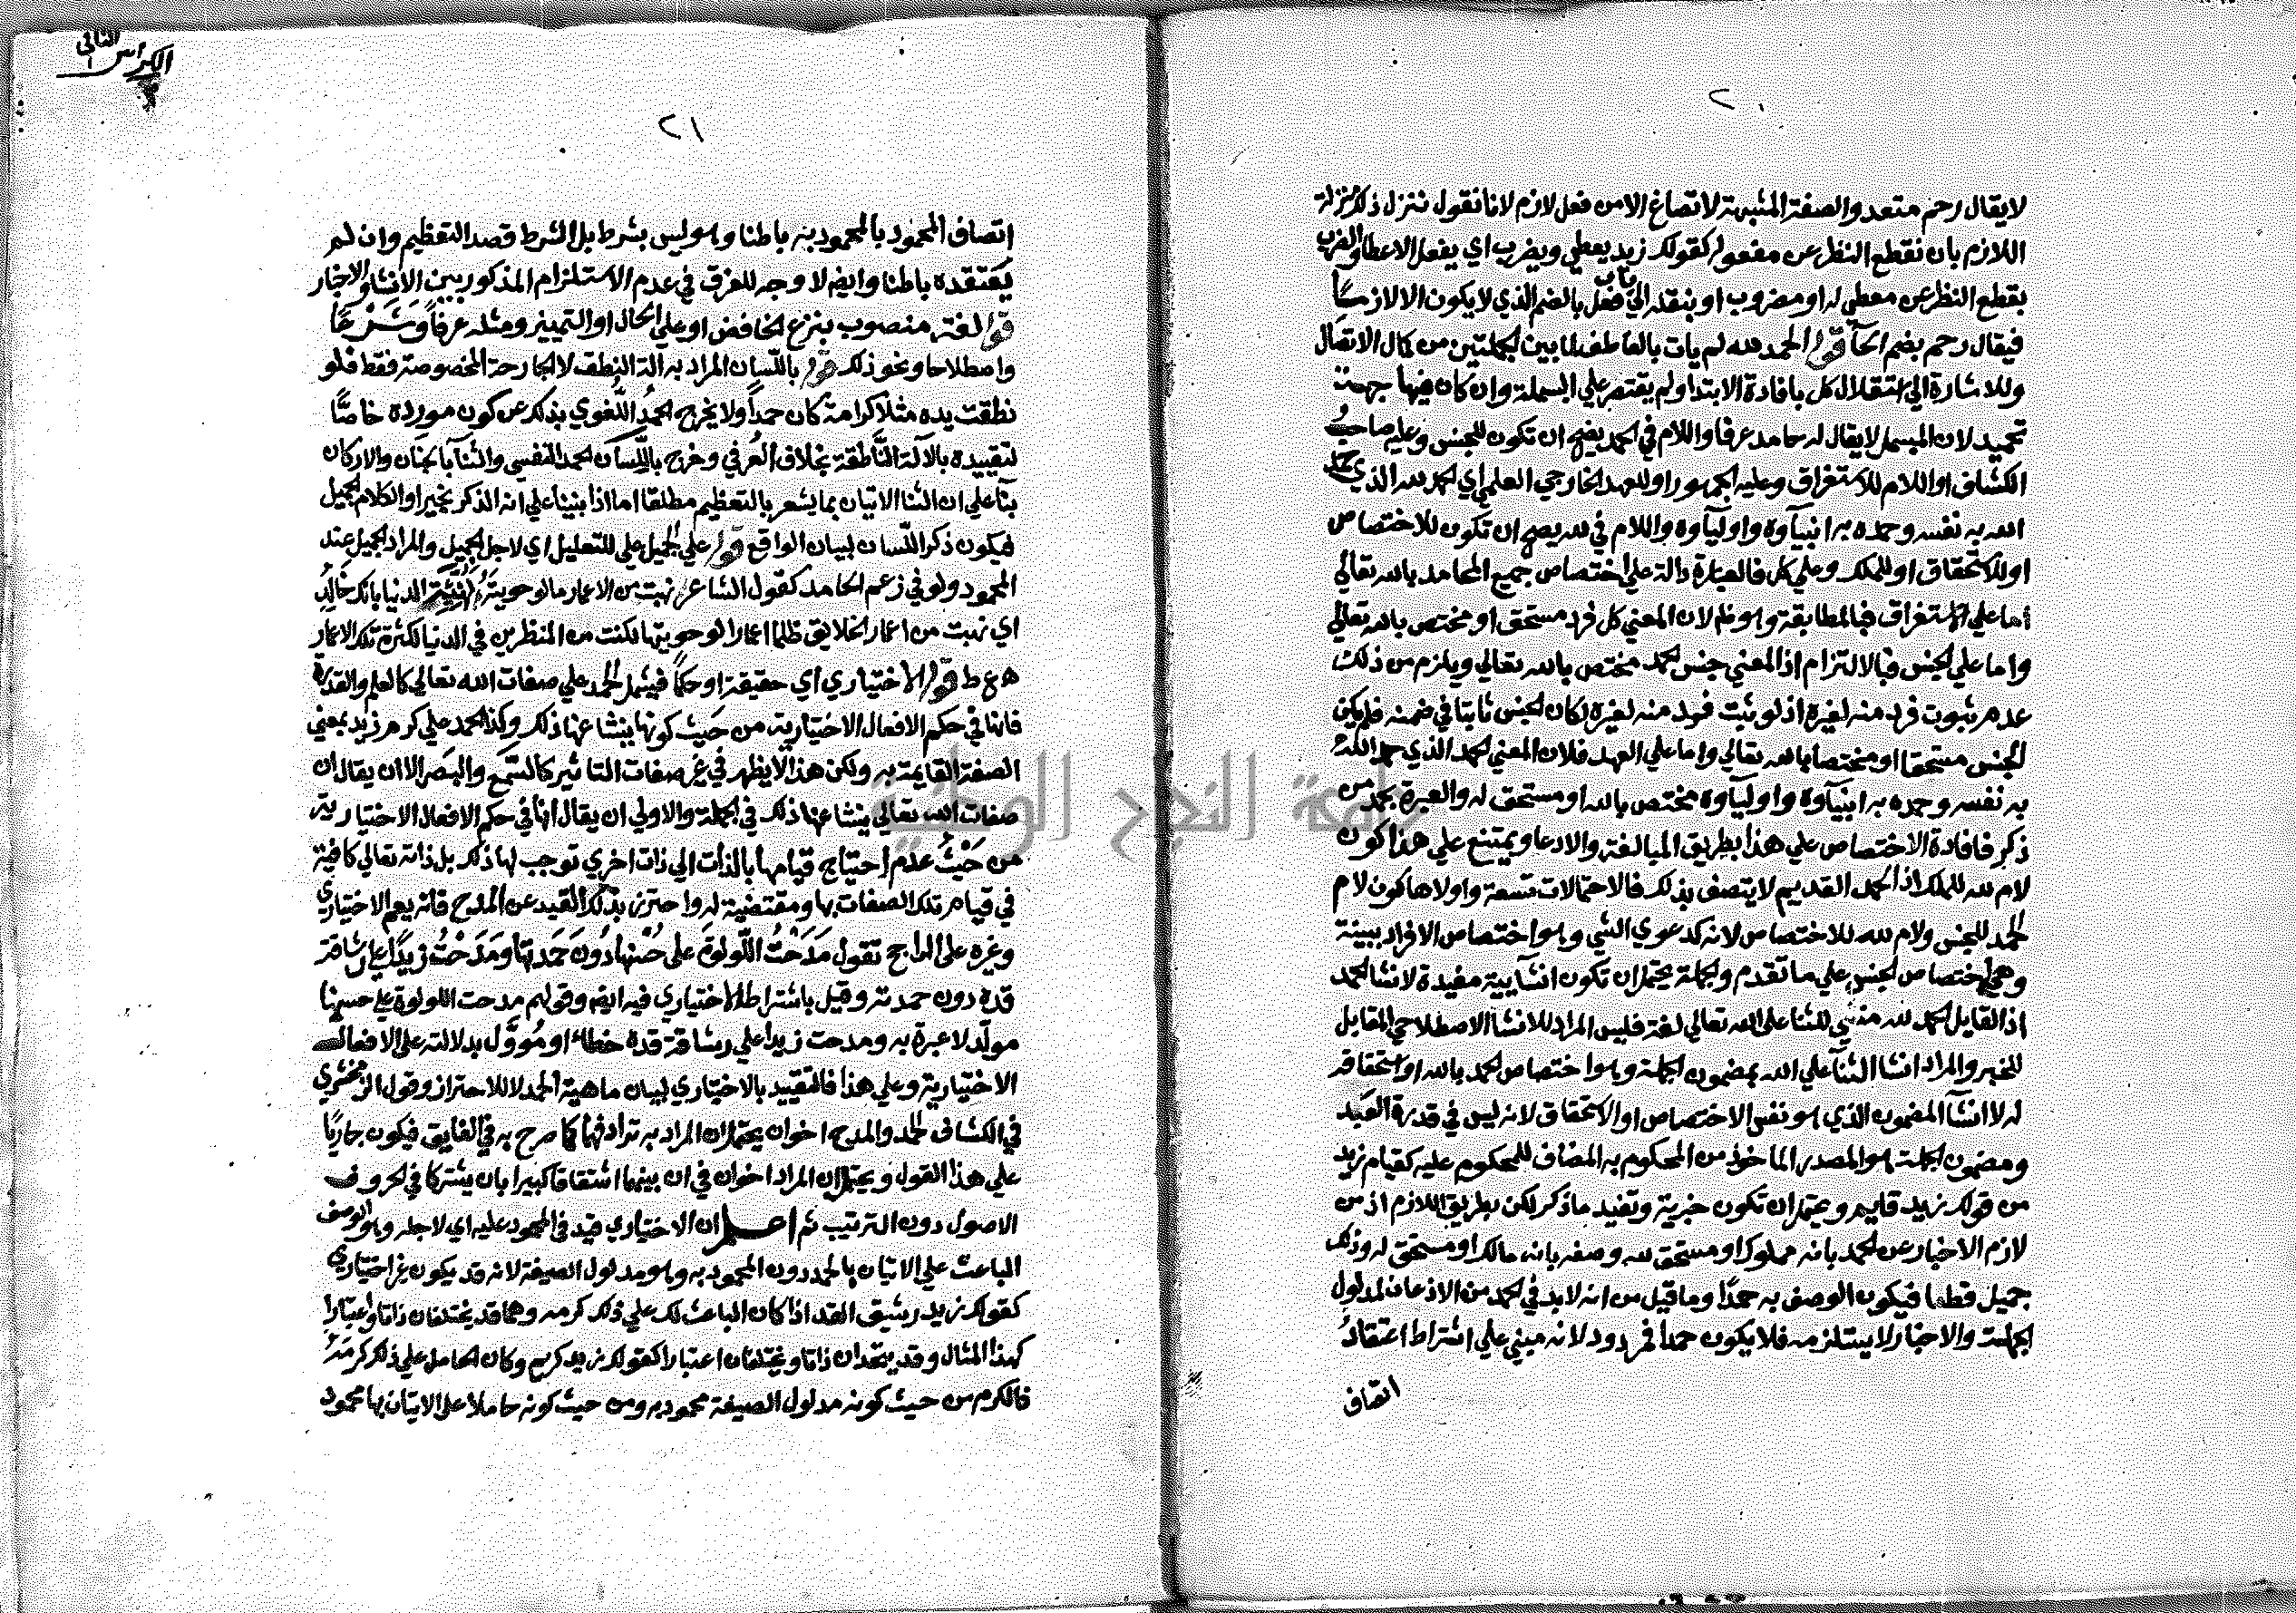 ٢٠
لا يقال رحم متعد والصفة المشبهة لا تصاغ الا من فعل لازم لانا نقول ننزل ذلك منزلة
اللازم بان نقطع النظر عن مفعوله كقولك زيد يعطي ويضرب اي يفعل الاعطا والضرب
بقطع النظر عن معطي له او مضروب او ينقله الي باب فعل بالضم الذي لا يكون الا لازما
فيقال رحم بضم الحآ قوله الحمد لله لم يات بالعاطف لما بين الجملتين من كمال الاتصال
وللاشارة الي استقلال كل بافادة الابتدا ولم يقتصر علي البسملة وان كان فيها جهة
تحميد لان المبسمل لا يقال له حامد عرفا واللام في الحمد يصح ان تكون للجنس وعليه صاحب
الكشاف او اللام للاستغراق وعليه الجمهور او للعهد الخارجي العلمي اي الحمد لله الذي حمد
الله به نفسه وحمده به انبيآوه واوليآوه واللام في لله يصح ان تكون للاختصاص
او للاستحقاق او للملك وعلي كل فالعبارة دالة علي اختصاص جميع المحامد بالله تعالي
اما علي الاستغراق فبالمطابقة وهو ظم لان المعني كل فرد مستحق او مختص بالله تعالي
واما علي الجنس فبالالتزام اذ المعني جنس الحمد مختص بالله تعالي ويلزم من ذلك
عدم ثبوت فرد منه لغيره اذ لو ثبت فرد منه لغيره لكان الجنس ثابتا في ضمنه فلم يكن
الجنس مستحقا او مختصا بالله تعالي واما علي العهد فلان المعني الحمد الذي حمد الله
به نفسه وحمده به انبيآوه واوليآوه مختص بالله او مستحق له والعبرة بحمد من
ذكر فافادة الاختصاص علي هذا بطريق المبالغة والادعا ويمتنع علي هذا كون
لام لله للملك اذ الحمد القديم لا يتصف بذلك فالاحتمالات تسعة واولاها كون لام
الحمد للجنس ولام لله للاختصاص لانه كدعوي الشي وهو اختصاص الافراد ببينة
وهي اختصاص الجنس علي ما تقدم والجملة يحتمل ان تكون انشآيية مفيدة لانشا الحمد
اذ القايل الحمد لله منشي للثنا علي الله تعالي لغة فليس المراد للانشا الاصطلاحي المقابل
للخبر والمراد انشا الثنآ علي الله بمضمون الجملة وهو اختصاص الحمد بالله او استحقاقه
له لا انشآ المضمون الذي هو نفس الاختصاص او الاستحقاق لانه ليس في قدرة العبد
ومضمون الجملة هو المصدر الماخوذ من المحكوم به المضاف للمحكوم عليه كقيام زيد
من قولك زيد قايم ويحتمل ان تكون خبرية وتفيد ما ذكر لكن بطريق اللازم اذ من
لازم الاخبار عن الحمد بانه مملوك او مستحق لله وصفه بانه مالك او مستحق له وذلك
جميل قطعا فيكون الوصف به حمدا وما قيل من انه لا بد في الحمد من الاذعان لمدلول
الجملة والاخبار لا يستلزمه فلا يكون حمدا فمردود لانه مبني علي اشتراط اعتقاد
اتصاف
الكراس الثاني
٢١
اتصاف المحمود بالمحمود به باطنا وهو ليس بشرط بل الشرط قصد التعظيم وان لم
يعتقده باطنا وايضا لا وجه للفرق في عدم الاستلزام المذكور بين الانشا والاخبار
قوله لغة منصوب بنزع الخافض او علي الحال او التمييز ومثله عرفا وشرعا
واصطلاحا ونحو ذلك قوله باللسان المراد به الة النطق لا الجارحة المخصوصة فقط فلو
نطقت يده مثلا كرامة كان حمدا ولا يخرج الحمد اللغوي بذلك عن كون مورده خاصا
لتقييده بالآلة الناطقة بخلاف العرفي وخرج باللسان الحمد النفسي والثنآ بالجنان والاركان
بنآ علي ان الثنا الاتيان بما يشعر بالتعظيم مطلقا اما اذا بنينا علي انه الذكر بخير او الكلام الجميل
فيكون ذكر اللسان لبيان الواقع قوله علي الجميل علي للتعليل اي لاجل الجميل والمراد الجميل عند
المحمود ولو في زعم الحامد كقول الشاعر نهبت من الاعمار ما لو حويته لهنيت الدنيا بانك خالد
اي نهبت من اعمار الخلايق ظلما اعمارا لو حويتها لكنت من المنظرين في الدنيا لكثرة تلك الاعمار
ه ع ط قوله الاختياري اي حقيقة او حكما فيشمل الحمد علي صفات الله تعالي كالعلم والقدرة
فانها في حكم الافعال الاختيارية من حيث كونها ينشا عنها ذلك وكذا الحمد علي كرم زيد بمعني
الصفة القايمة به ولكن هذا لا يظهر في غير صفات التاثير كالسمع والبصر الا ان يقال ان
صفات الله تعالي ينشا عنها ذلك في الجملة والاولي ان يقال انها في حكم الافعال الاختيارية
من حيث عدم احتياج قيامها بالذات الي ذات اخري توجب لها ذلك بل ذاته تعالي كافية
في قيام تلك الصفات بها ومقتضية له واحترز بذلك القيد عن المدح فانه يعم الاختياري
وغيره علي الراجح تقول مدحت اللولوة علي حسنها دون حمدتها ومدحت زيدا علي رشاقة
قده دون حمدته وقيل باشتراط الاختياري فيه ايضا وقولهم مدحت اللولوة علي حسنها
مولد لا عبرة به ومدحت زيدا علي رشاقة قده خطا او موول بدلالته علي الافعال
الاختيارية وعلي هذا فالتقييد بالاختياري لبيان ماهية الحمد لا للاحتراز وقول الزمخشري
في الكشاف الحمد والمدح اخوان يحتمل ان المراد به ترادفهما كما صرح به في الفايق فيكون جاريا
علي هذا القول ويحتمل ان المراد اخوان في ان بينهما اشتقاقا كبيرا بان يشتركا في الحروف
الاصول دون الترتيب ثم اعلم ان الاختياري قيد في المحمود عليه اي لاجله وهو الوصف
الباعث علي الاتيان بالحمد دون المحمود به وهو مدلول الصيغة لانه قد يكون غير اختياري
كقولك زيد رشيق القد اذا كان الباعث لك علي ذلك كرمه وهما قد يختلفان ذاتا واعتبارا
كهذا المثال وقد يتحدان ذاتا ويختلفان اعتبارا كقولك زيد كريم وكان الحامل علي ذلك كرمه
فالكرم من حيث كونه مدلول الصيغة محمود به ومن حيث كونه حاملا علي الاتيان بها محمود
جامعة النجاح الوطنية